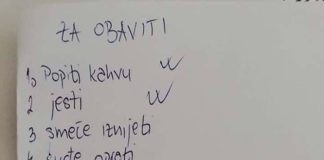 ZA OBAVITI
1. Popiti kahvu
2 jesti
3 smeće iznijeti